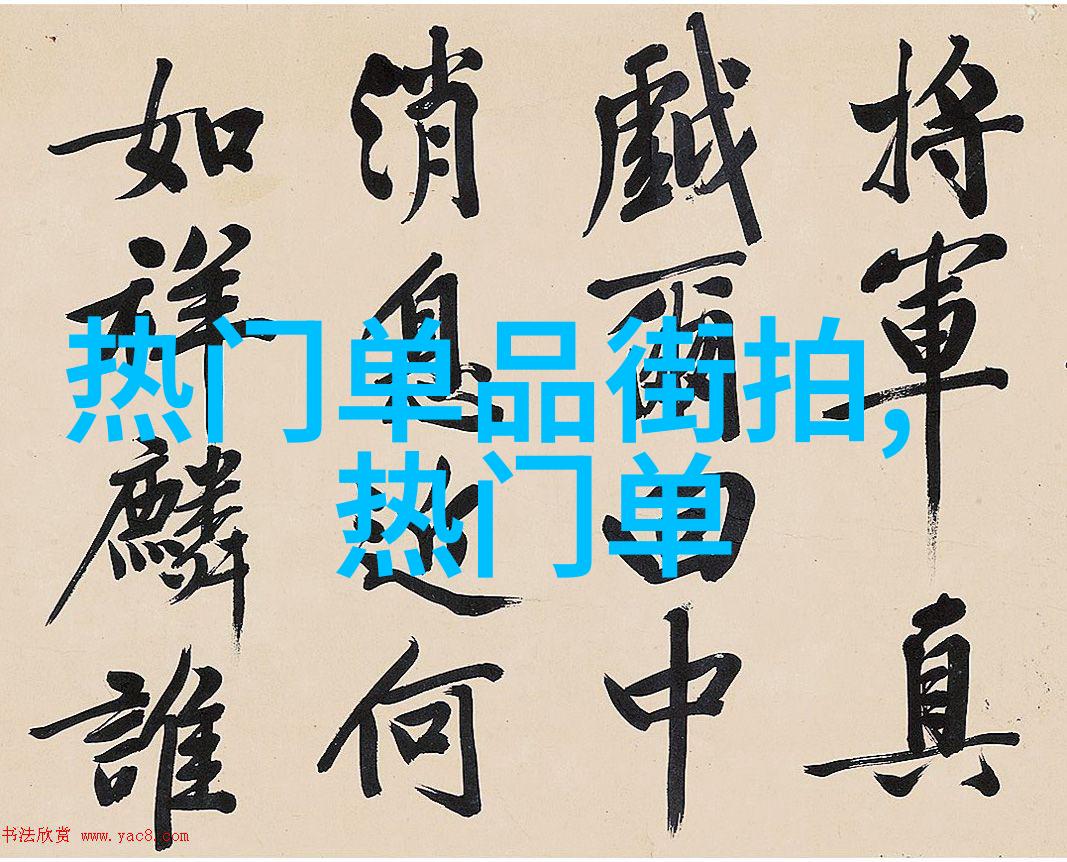 將軍真
戲爾中
消息近何
如祥麟誰
热门单品街拍,
热门单
书法欣赏 www.yac8.com